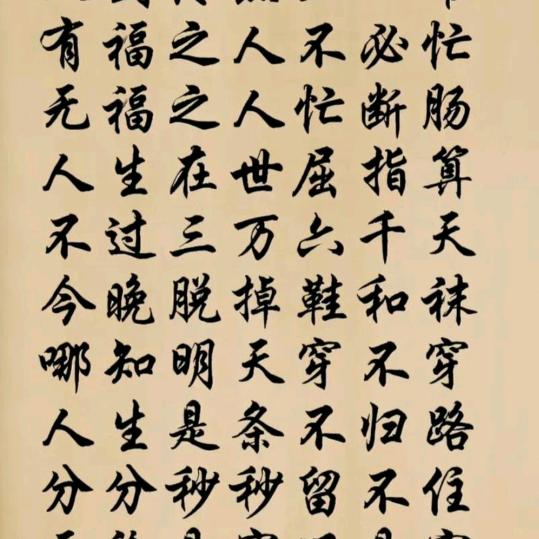 有福之人不必忙
无福之人忙断肠
人生在世屈指算
不过三万六千天
今晚脱掉鞋和袜
哪知明天穿不穿
人生是条不归路
分分秒秒留不住